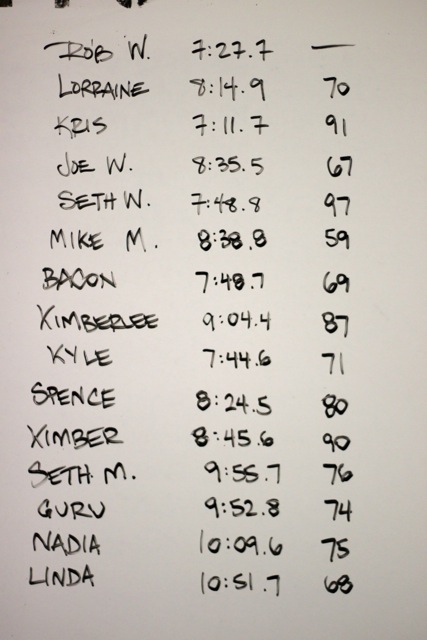 ROB W. 7:27.7 —
LORRAINE 8:14.9 70
KRIS 7:11.7 91
JOE W. 8:35.5 67
SETH W. 7:48.8 97
MIKE M. 8:38.8 59
BACON 7:48.7 69
KIMBERLEE 9:04.4 87
KYLE 7:44.6 71
SPENCE 8:24.5 80
KIMBER 8:45.6 90
SETH M. 9:55.7 76
GURU 9:52.8 74
NADIA 10:09.6 75
LINDA 10:51.7 68